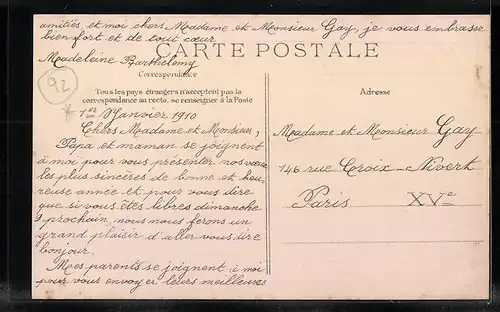 amitiés et moi chers Madame et Monsieur Gay, je vous embrasse
bien fort et de tout cœur
CARTE POSTALE
Madeleine Barthélemy
92
Correspondance
Tous les pays étrangers n'acceptent pas la
correspondance au recto, se renseigner à la Poste
Adresse
1er Janvier 1910
Chers Madame et Monsieur,
Papa et maman se joignent
à moi pour vous présenter nos vœux
les plus sincères de bonne et heu-
reuse année et pour vous dire
que si vous êtes libres dimanche
prochain nous nous ferons un
grand plaisir d'aller vous dire
bonjour.
Mes parents se joignent à moi
pour vous envoyer leurs meilleures
Madame et Monsieur Gay
146 rue Croix-Nivert
Paris XVe